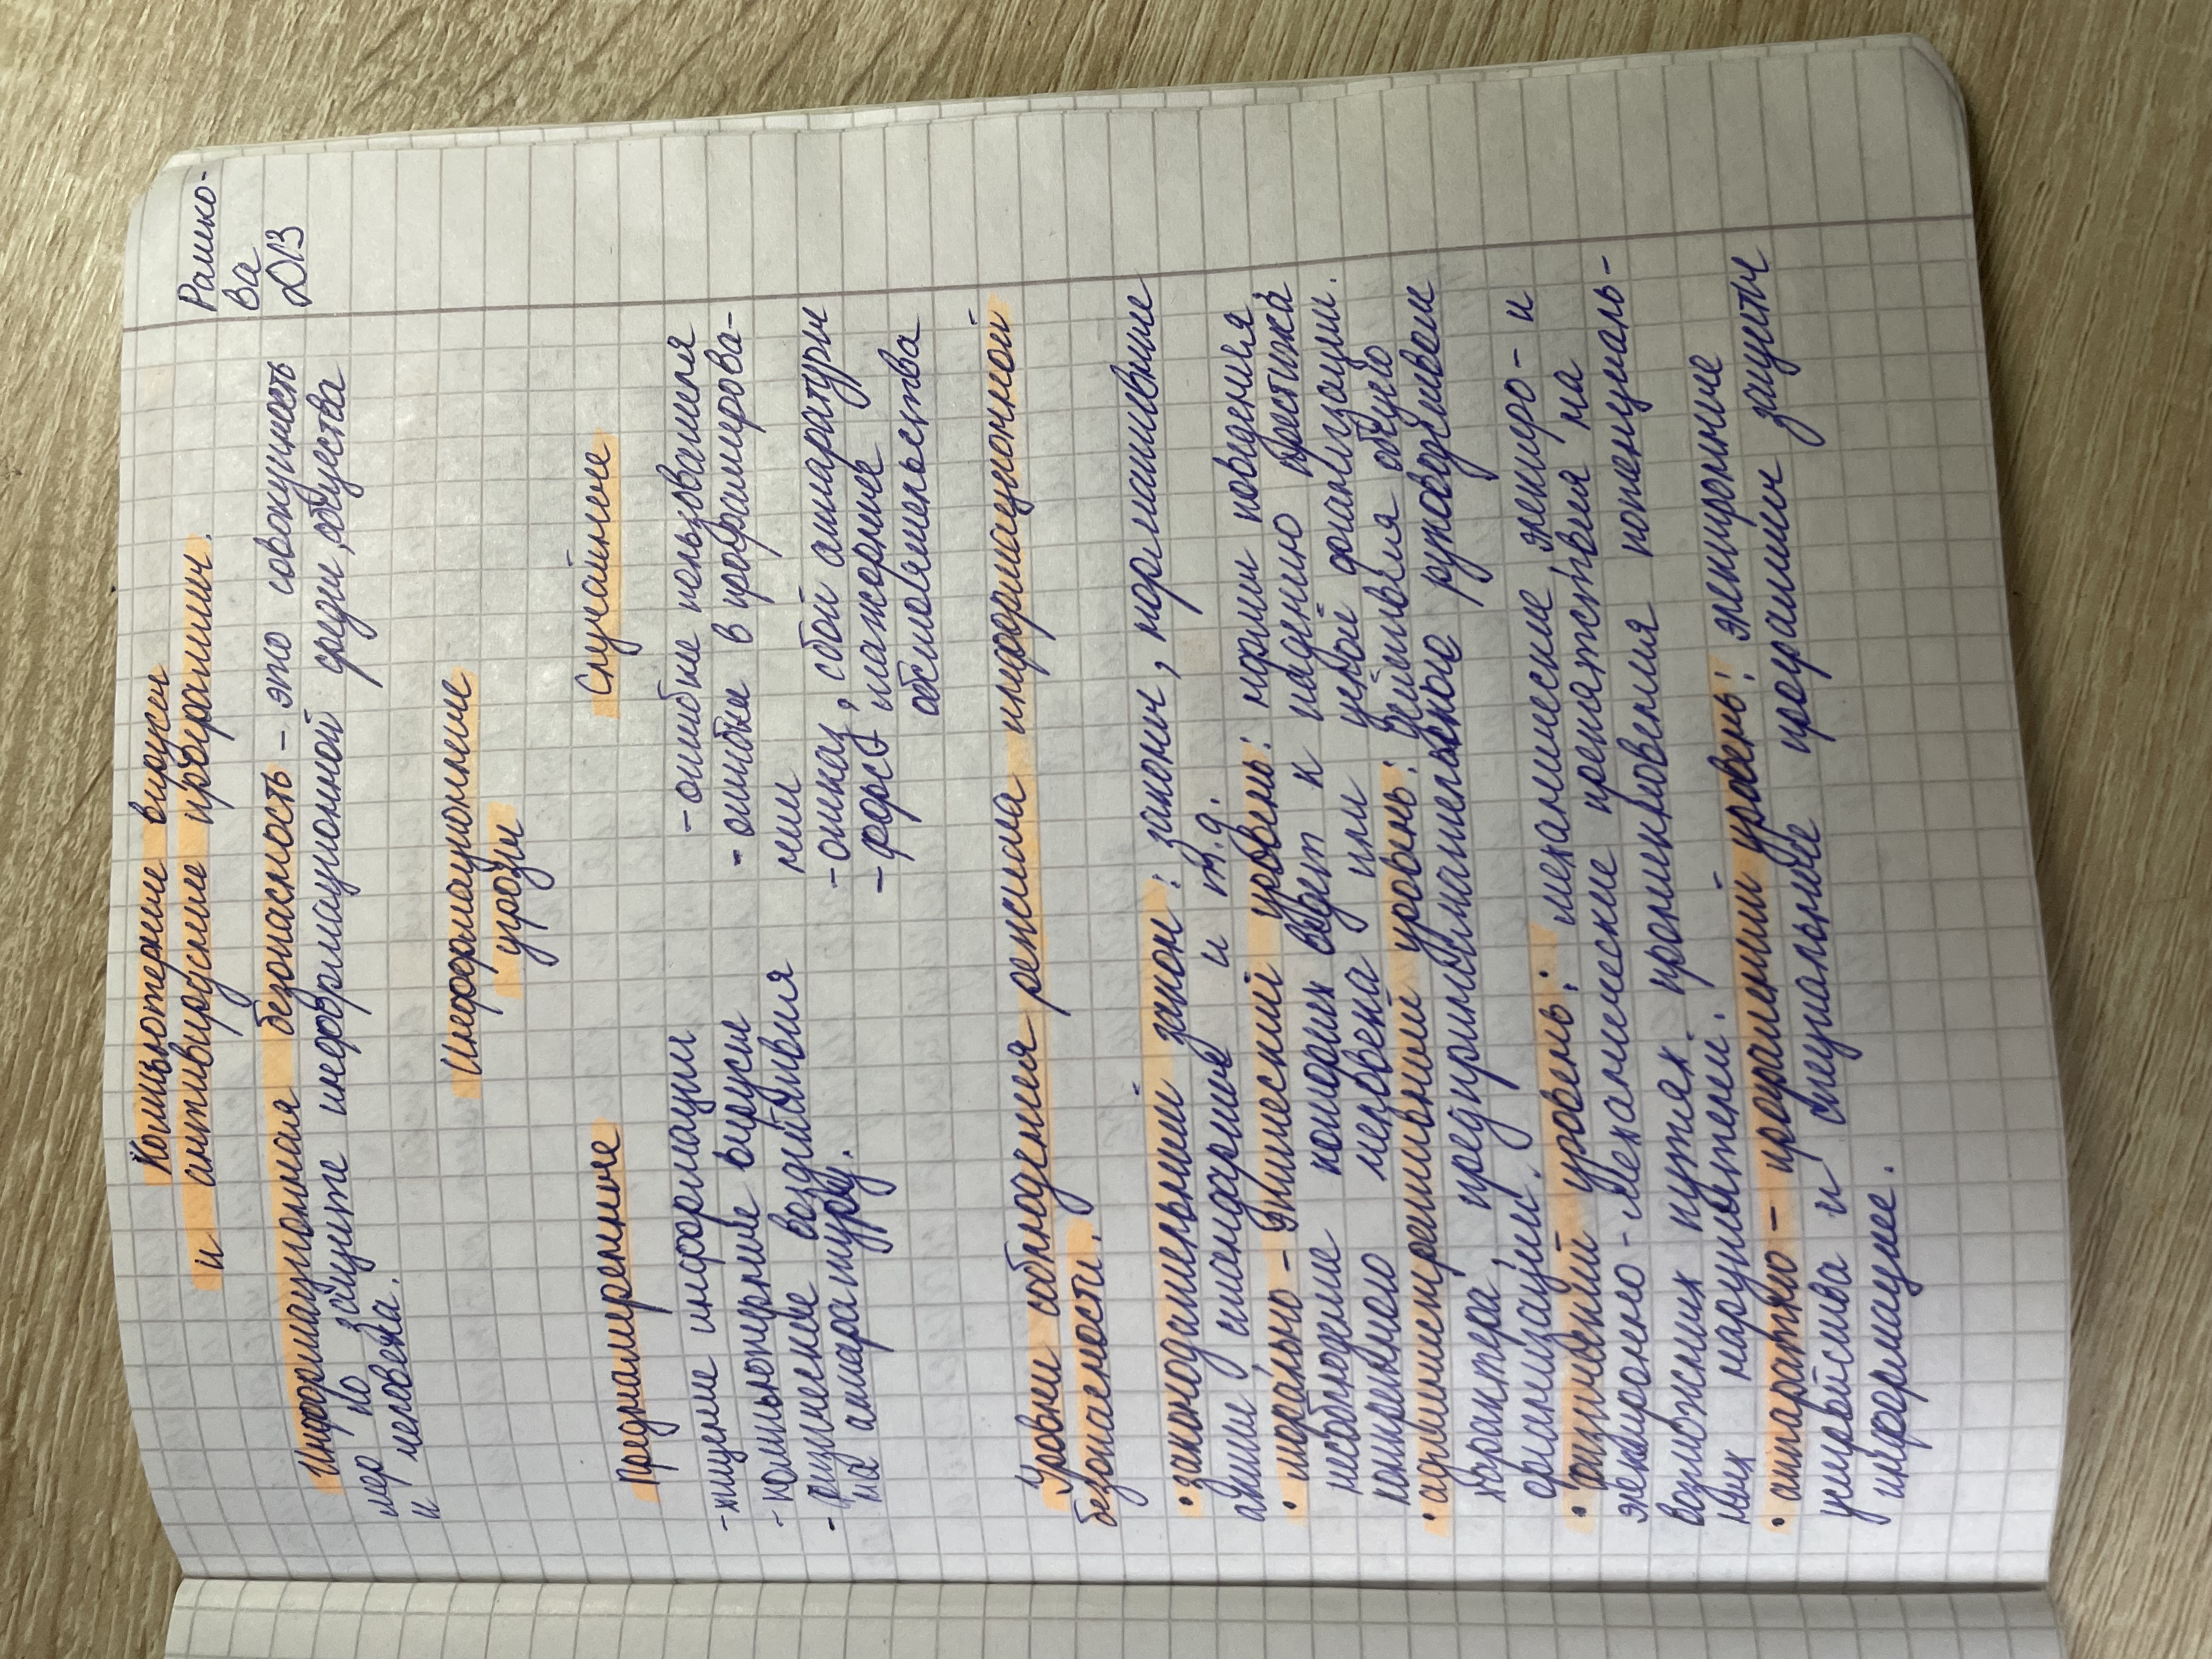 Рашко-
ва
ДІЗ
Компьютерные вирусы
и антивирусные программы.
Информационная безопасность - это совокупность
мер по защите информационной среды, общества
и человека.
Информационные
угрозы
Преднамеренные
- хищение информации
- компьютерные вирусы
- физическое воздействия
на аппаратуру.
Случайные
- ошибки пользователя
- ошибки в программирова-
нии
- отказ, сбой аппаратуры
- форс мажорные
обстоятельства
Уровни соблюдения режима информационной
безопасности.
• законодательный закон: законы, нормативные
акты, стандарты и т.д.
• морально - этический уровень: нормы поведения
несоблюдение которых ведёт к падению престижа
конкретного человека или целой организации.
• административный уровень: действия общего
характера, предпринимательские руководством
организации.
• физический уровень: механические, электро- и
электронно - механические препятствия на
возможных путях проникновения потенциаль-
ных нарушителей.
• аппаратно - программный уровень: электронные
устройства и специальные программы защиты
информации.